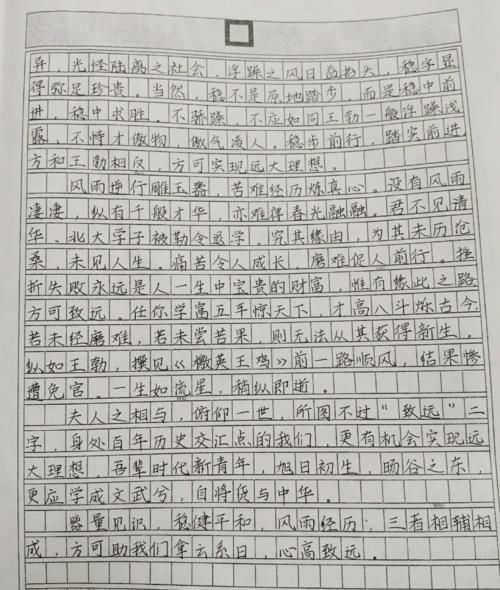 异，光怪陆离之社会，浮躁之风日益抬头，稳字显
得弥足珍贵。当然，稳不是原地踏步，而是稳中前
进，稳中求胜。不骄躁，不应如同王勃一般浮躁浅
露，不恃才傲物，傲气凌人。稳步前行，踏实前进
方和王勃相反，方可实现远大理想。
风雨逆行雕玉器，苦难经历炼真心。没有风雨
凄凄，纵有千般才华，亦难得春光融融。君不见清
华、北大学子被勒令退学。究其缘由，为其未历沧
桑，未见人生。痛苦令人成长，磨难促人前行。挫
折失败永远是人一生中宝贵的财富，惟有缘此之路
方可致远。任你学富五车惊天下，才高八斗烁古今
若未经磨难，若未尝苦果，则无法从其获得新生。
纵如王勃，撰见《檄英王鸡》前一路顺风，结果惨
遭免官。一生如流星，稍纵即逝。
夫人之相与，俯仰一世，所图不过“致远”二
字，身处百年历史交汇点的我们，更有机会实现远
大理想，吾辈时代新青年，旭日初生，旸谷之东，
更应学成文武兮，自将货与中华。
器量见识，稳健平和，风雨经历；三者相辅相
成，方可助我们拿云系日，心高致远。